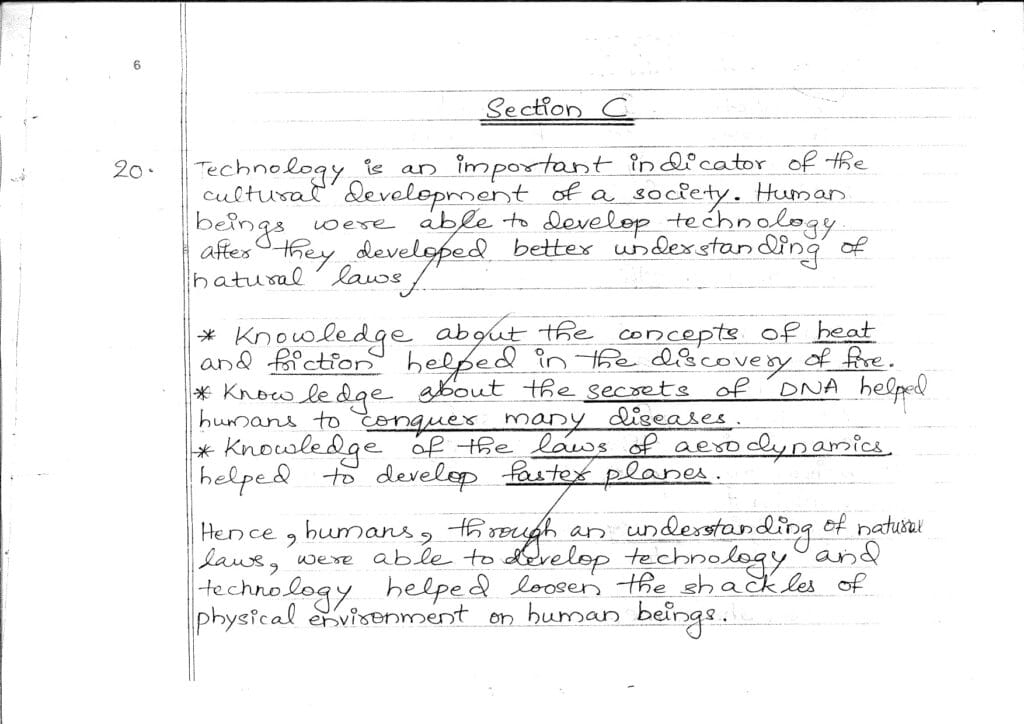 6
Section C
20. Technology is an important indicator of the
cultural development of a society. Human
beings were able to develop technology
after they developed better understanding of
natural laws.
* Knowledge about the concepts of heat
and friction helped in the discovery of fire.
* Knowledge about the secrets of DNA helped
humans to conquer many diseases.
* Knowledge of the laws of aerodynamics
helped to develop faster planes.
Hence, humans, through an understanding of natural
laws, were able to develop technology and
technology helped loosen the shackles of
physical environment on human beings.